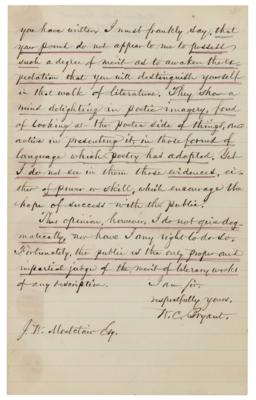 you have written I must frankly say, that
your poems do not appear to me to possess
such a degree of merit as to awaken the ex-
pectation that you will distinguish yourself
in that walk of literature. They show a
mind delighting in poetic imagery, fond
of looking at the poetic side of things, and
active in presenting it in those forms of
language which poetry has adopted. Yet
I do not see in them those evidences, ei-
ther of power or skill, which encourage the
hope of success with the public.
This opinion, however, I do not give dog-
matically, nor have I any right to do so.
Fortunately, the public is the only proper and
impartial judge of the merit of literary works
of any description.
I am sir,
respectfully yours,
W. C. Bryant.
J. W. Esq.